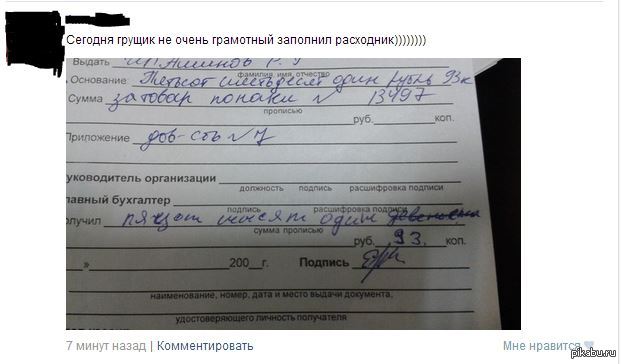 Сегодня грущик не очень грамотный заполнил расходник))))))))
Выдать ИП Алимов Р. У
фамилия, имя, отчество
Основание: Тетьсот шестьдесят один рубль 93к
Сумма за товар по накл № 13497
прописью
руб. коп.
Приложение дов-сть №7
уководитель организации
должность подпись расшифровка подписи
лавный бухгалтер
подпись расшифровка подписи
олучил пяцот шисят один
сумма прописью
руб. 93. коп.
» 200 г. Подпись
наименование, номер, дата и место выдачи документа,
удостоверяющего личность получателя
7 минут назад | Комментировать
Мне нравится
pikabu.ru